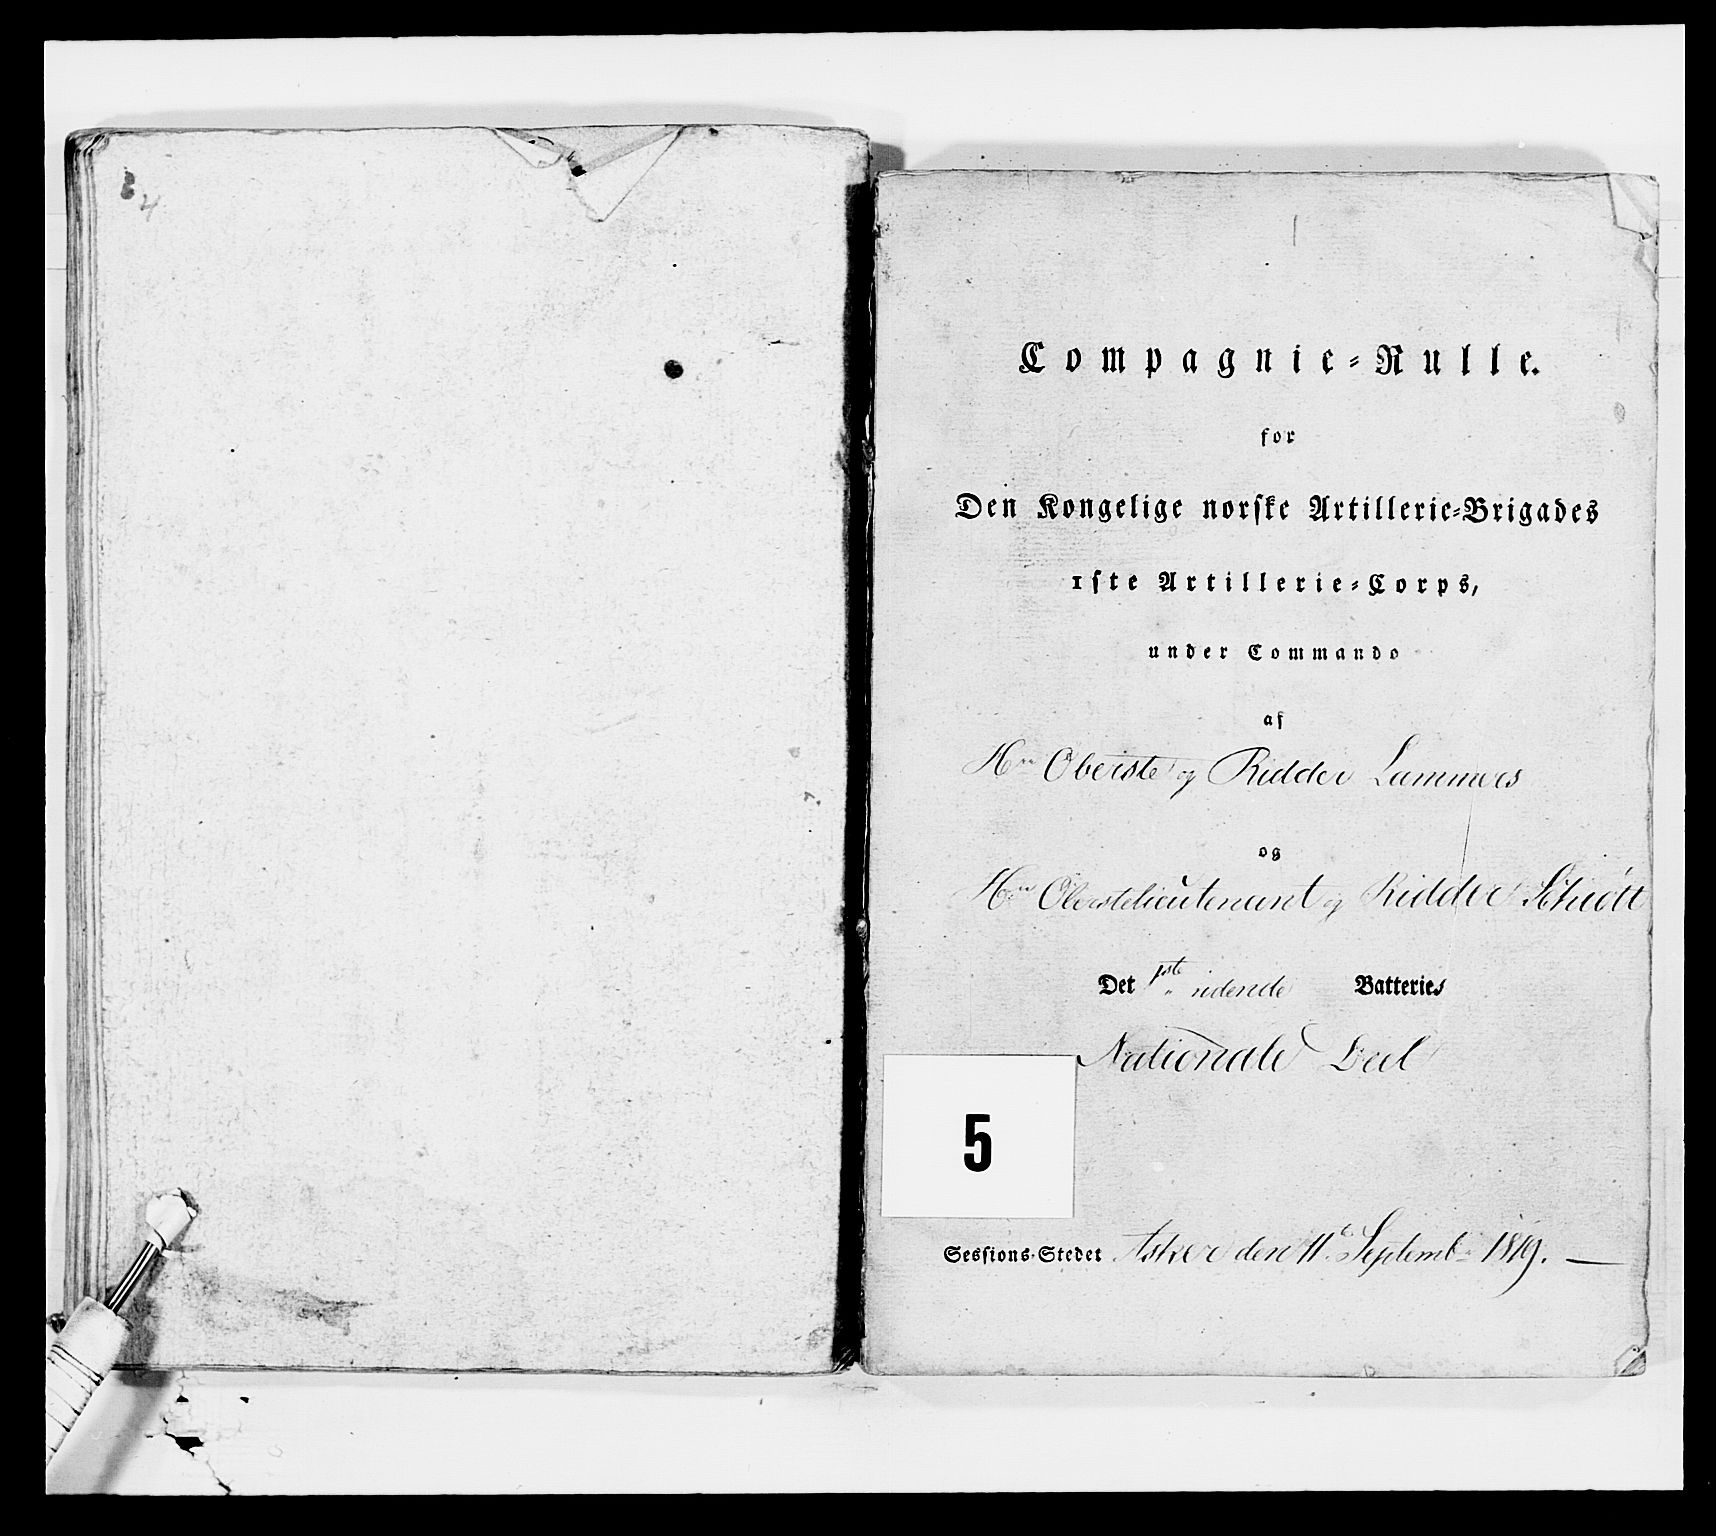 Compagnie-Rulle.
for
Den Kongelige norske Artillerie-Brigades
1ste Artillerie-Corps,
under Commando
af
Hrr Oberste og Ridder Lammers
og
Hrr Oberstelieutenant og Ridder
Det 1ste ridende Batteries
Nationale Deel
5
Sessions-Stedet Asker den 11te Septembr 1819.